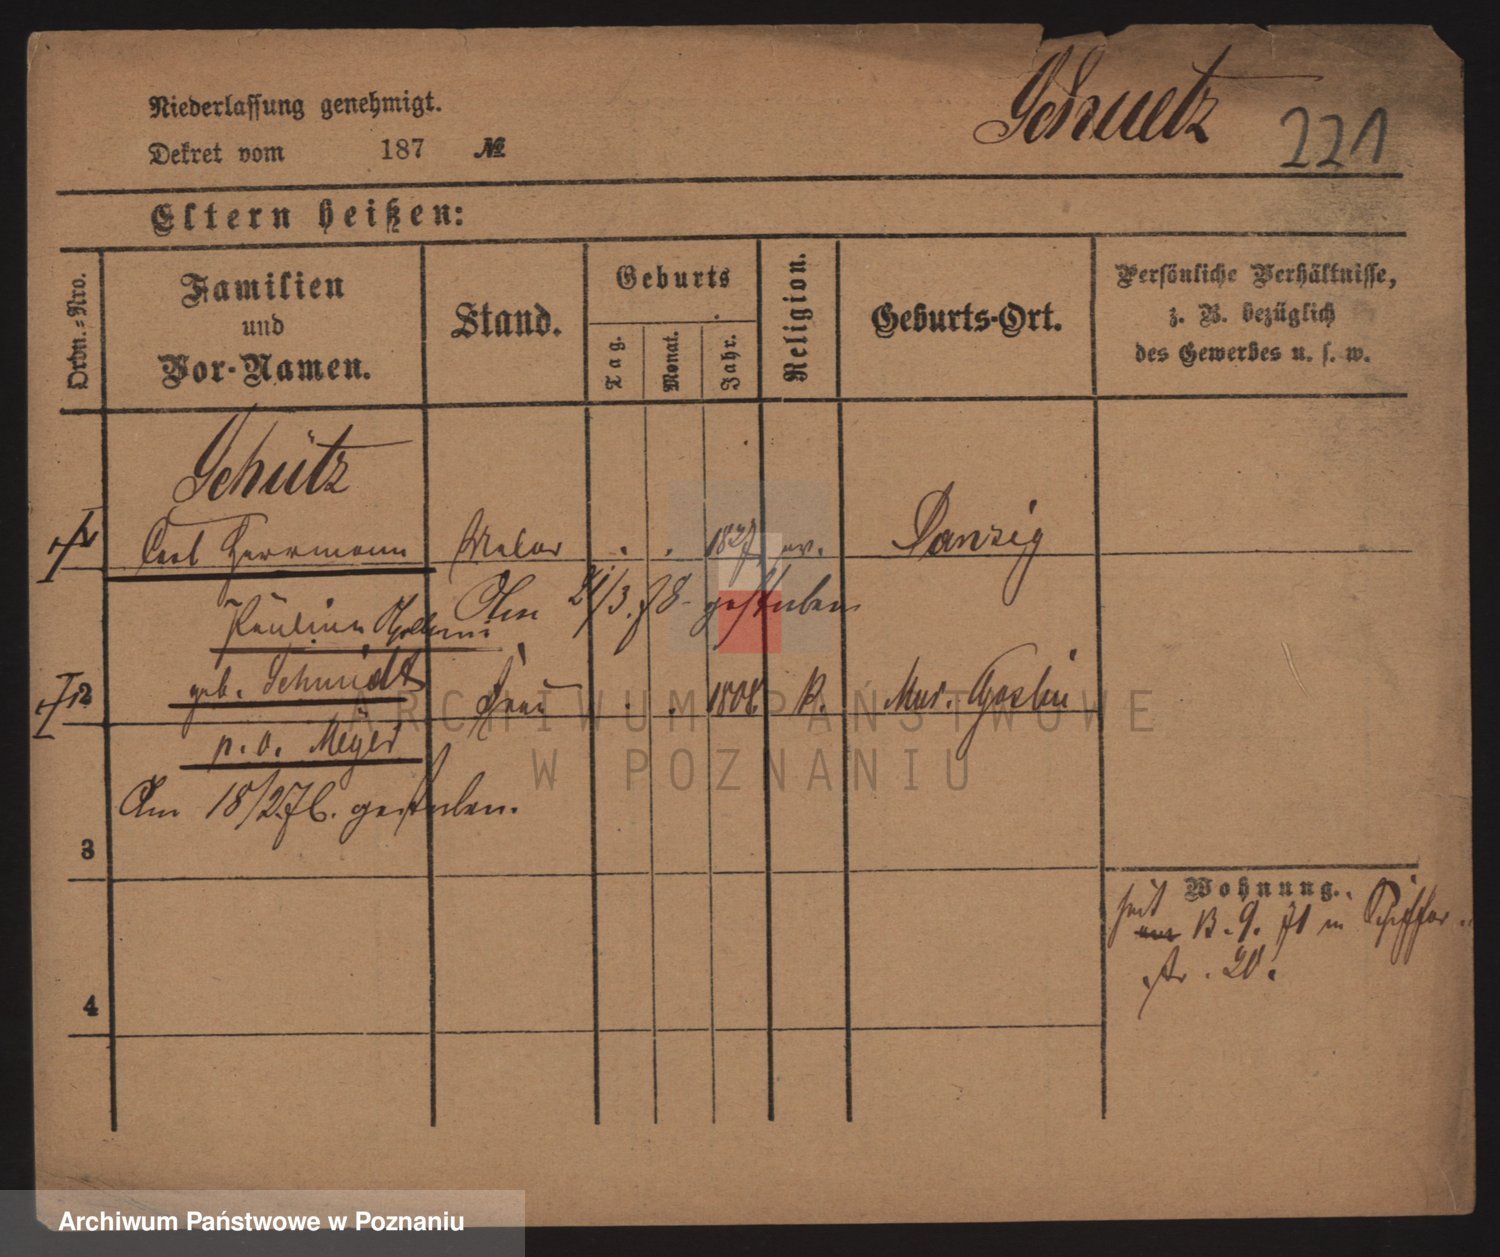 Niederlassung genehmigt.
Schuetz
221
Dekret vom 187 №
Eltern heißen:
Ordn.-Nro.
Familien
und
Vor-Namen.
Stand.
Geburts
Tag.
Monat.
Jahr.
Religion.
Geburts-Ort.
Persönliche Verhältnisse,
z. B. bezüglich
des Gewerbes u. s. w.
Schütz
1 Carl Herrmann Maler . . 1827 ev. Danzig
Am 21/3.78 gestorben
Pauline
geb. Schmidt
2 Frau . . 1808. k. Mur. Goslin
p. v. Meyer
Am 18/2.76. gestorben.
3
Wohnung.
seit 13.9.71 in Schiffer-
str. 20.
4
ARCHIWUM PAŃSTWOWE
W POZNANIU
Archiwum Państwowe w Poznaniu